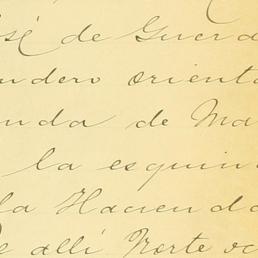 osé de Guerra
ndero orienta
nda de Ma
la esquin
la Hacienda
de allí Norte